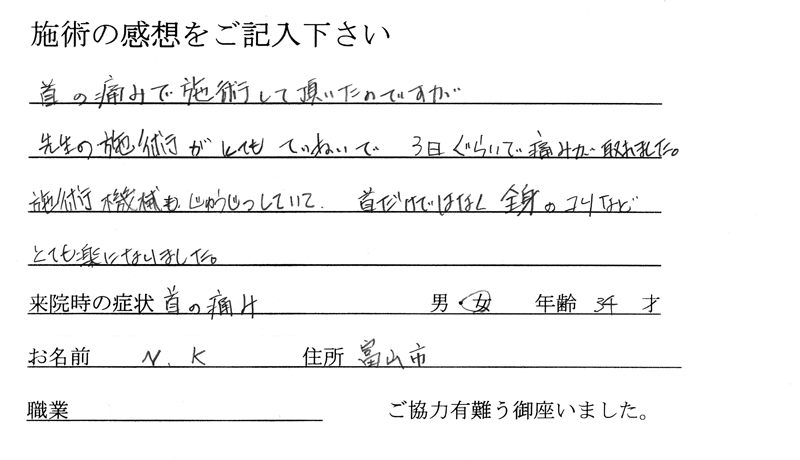 施術の感想をご記入下さい
首の痛みで施術して頂いたのですが
先生の施術がとても ていねいで 3日ぐらいで痛みが取れました。
施術機械もじゅうじつしていて. 首だけではなく 全身のコリなど
とても楽になりました。
来院時の症状 首の痛み 男・女 年齢 34 才
お名前 N.K 住所 富山市
職業 ご協力有難う御座いました。